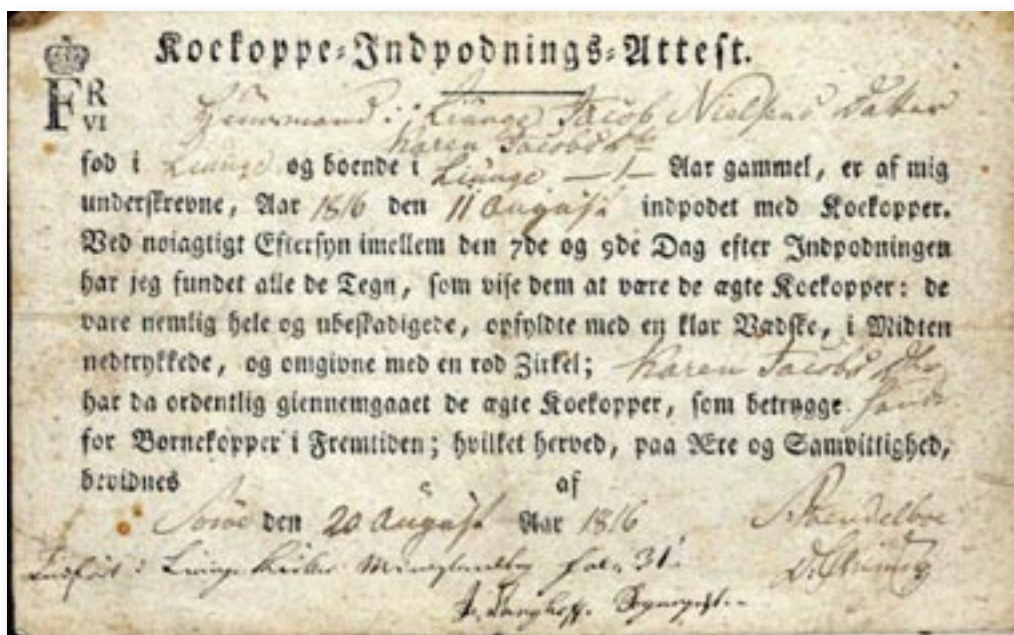 Kockoppe-Indpodnings-Attest.
FR
VI
Huusmand i Liunge Jacob Nielsens Datter
Karen Jacobsdtr
fød i Liunge og boende i Liunge —1— Aar gammel, er af mig
underskrevne, Aar 1816 den 11 August indpodet med Koekopper.
Ved nøiagtigt Eftersyn imellem den 7de og 9de Dag efter Indpodningen
har jeg fundet alle de Tegn, som vise dem at være de ægte Koekopper: de
vare nemlig hele og ubeskadigede, opfyldte med en klar Vædske, i Midten
nedtrykkede, og omgivne med en rød Zirkel; Karen Jacobsdtr
har da ordentlig giennemgaaet de ægte Koekopper, som betrygge
for Børnekopper i Fremtiden; hvilket herved, paa Ære og Samvittighed,
bevidnes af
Soröe den 20 August Aar 1816
Indført i Liunge Kirkes